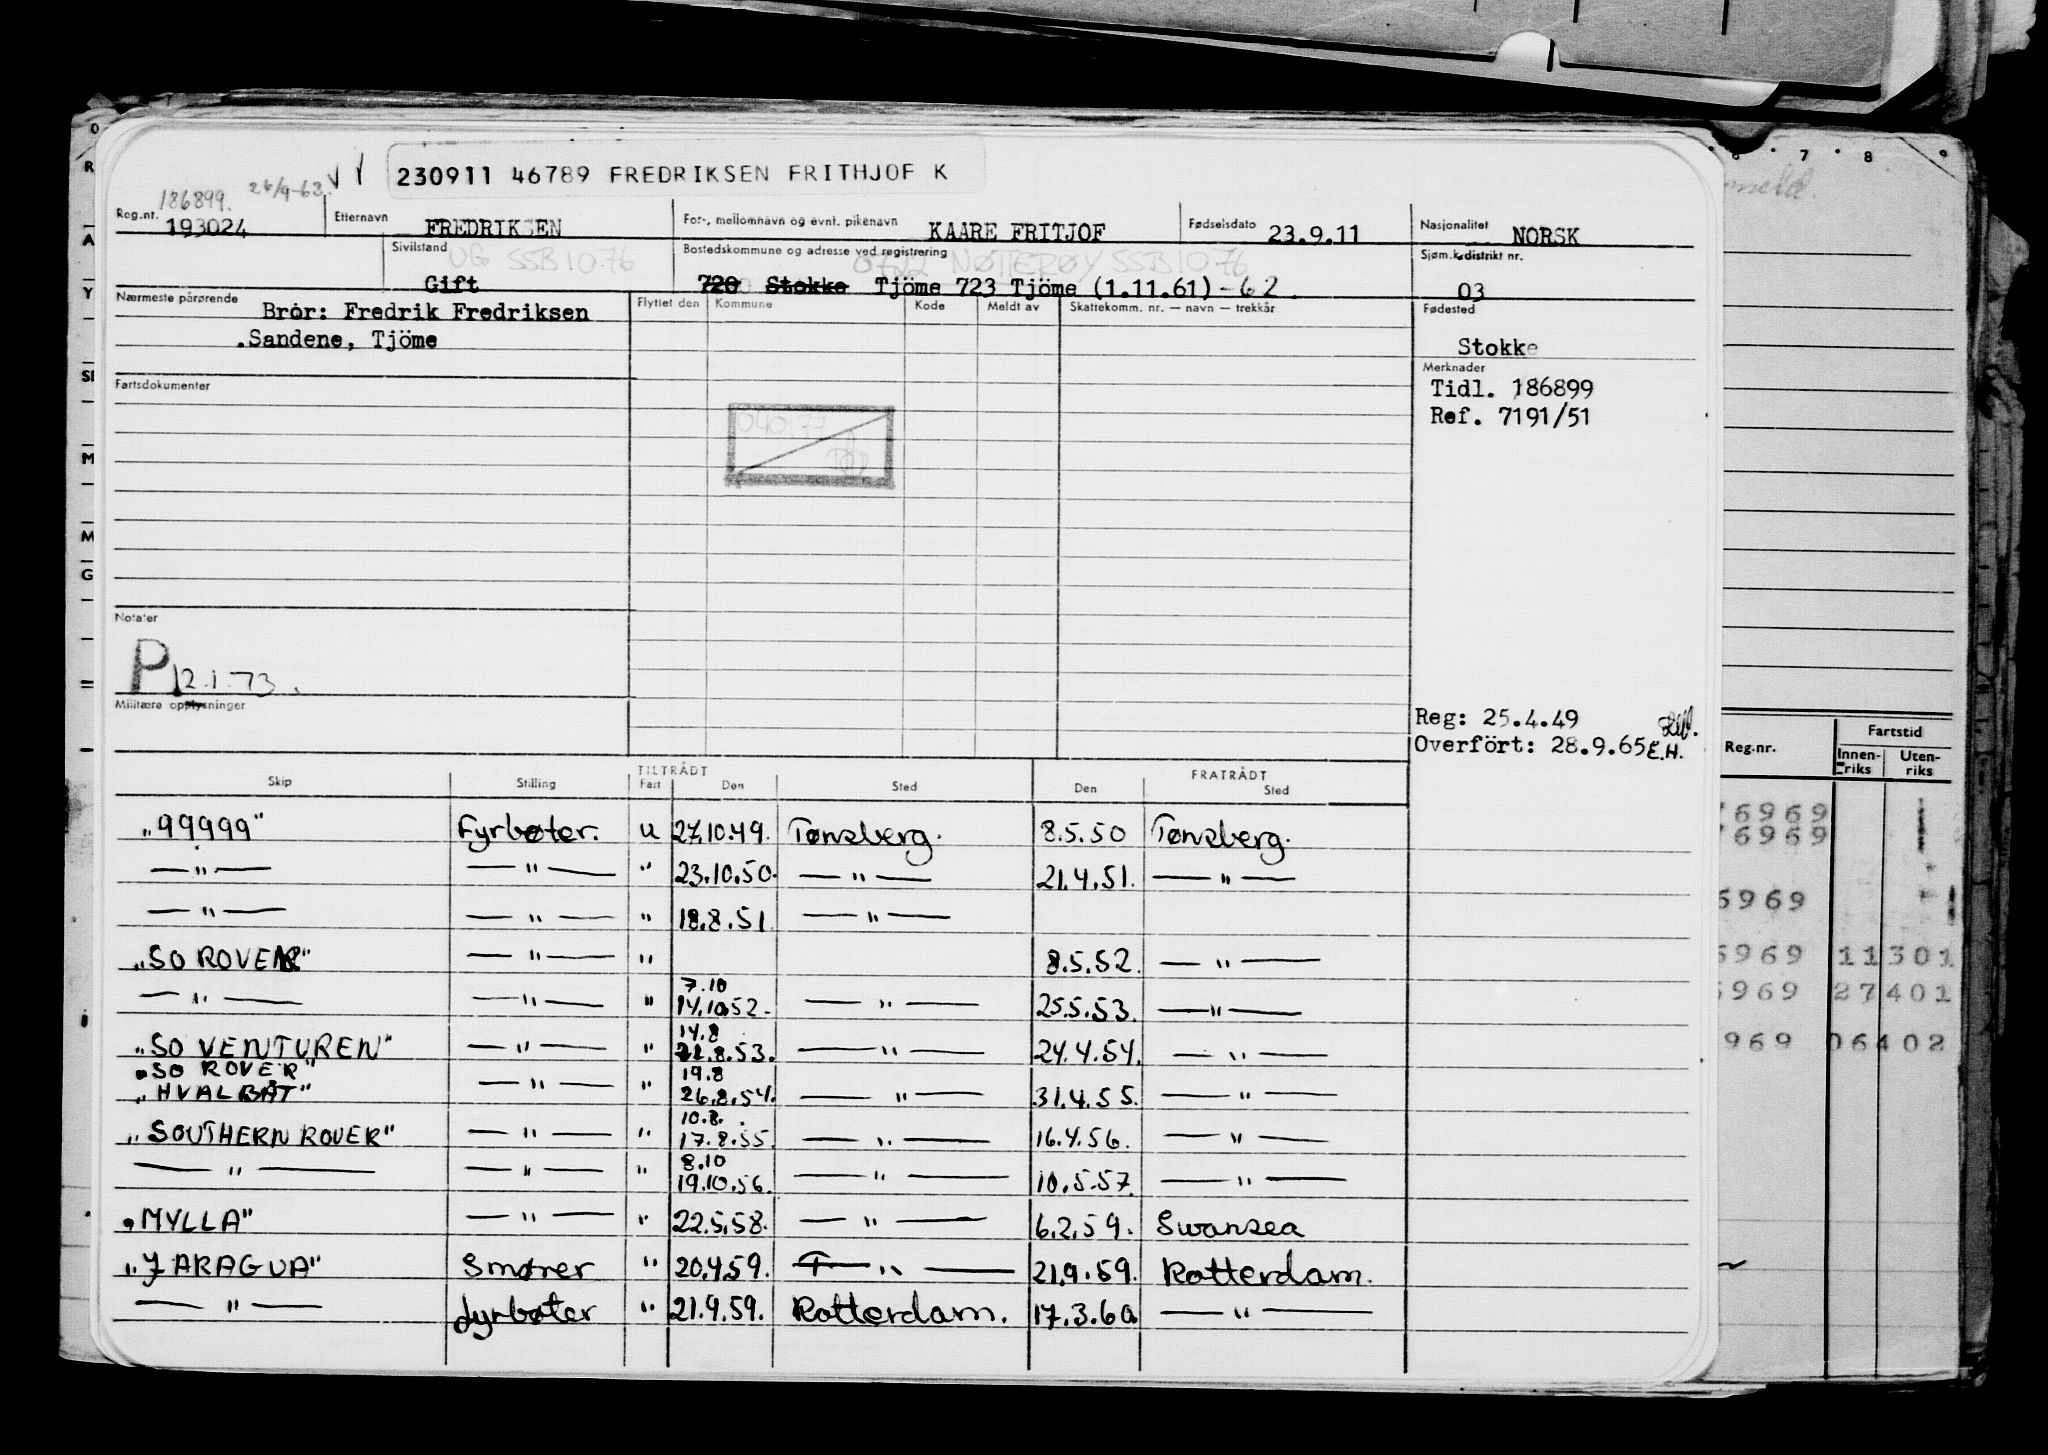 230911 46789 FREDRIKSEN FRITHJOF K
186899. 26/9-63.
Reg.nr. 193024 Etternavn FREDRIKSEN For-, mellomnavn og evnt. pikenavn KAARE FRITJOF Fødselsdato 23.9.11 Nasjonalitet NORSK
Sivilstand Bostedskommune og adresse ved registrering Sjøm.k.distrikt nr.
UG SSB 10.76 0722 NØTTERØY SSB 10.76
Gift 720 Stokke Tjöme 723 Tjöme (1.11.61) - 62. 03
Nærmeste pårørende Flyttet den Kommune Kode Meldt av Skattekomm. nr. — navn — trekkår Fødested
Bror: Fredrik Fredriksen
.Sandene, Tjöme Stokke
Fartsdokumenter Merknader
Tidl. 186899
Ref. 7191/51
040177
Notater
P 12.1.73.
Militære opplysninger
Reg: 25.4.49
Overført: 28.9.65 E.H.
TILTRÅDT FRATRÅDT
Skip Stilling Fart Den Sted Den Sted
"99999" Fyrbøter. u 27.10.49. Tønsberg. 8.5.50 Tønsberg.
— " — — " — " 23.10.50. — " — 21.4.51. — " —
— " — — " — " 18.8.51. — " —
"SO ROVER" — " — " 8.5.52. — " —
7.10
— " — — " — " 14.10.52. — " — 25.5.53. — " —
14.8
"SO VENTUREN" — " — " 22.8.53. — " — 24.4.54. — " —
"SO ROVER" 19.8
"HVALBÅT" — " — " 26.8.54. — " — 31.4.55. — " —
10.8.
"SOUTHERN ROVER" — " — " 17.8.55. — " — 16.4.56. — " —
8.10
— " — — " — " 19.10.56. — " — 10.5.57. — " —
"MYLLA" — " — " 22.5.58. — " — 6.2.59. Swansea
"JARAGUA" Smører " 20.4.59. — " — 21.9.59. Rotterdam.
— " — fyrbøter " 21.9.59. Rotterdam. 17.3.60 — " —
Reg.nr. Fartstid
Innen-riks Uten-riks
6969
6969
6969
6969 11301
6969 27401
969 06402